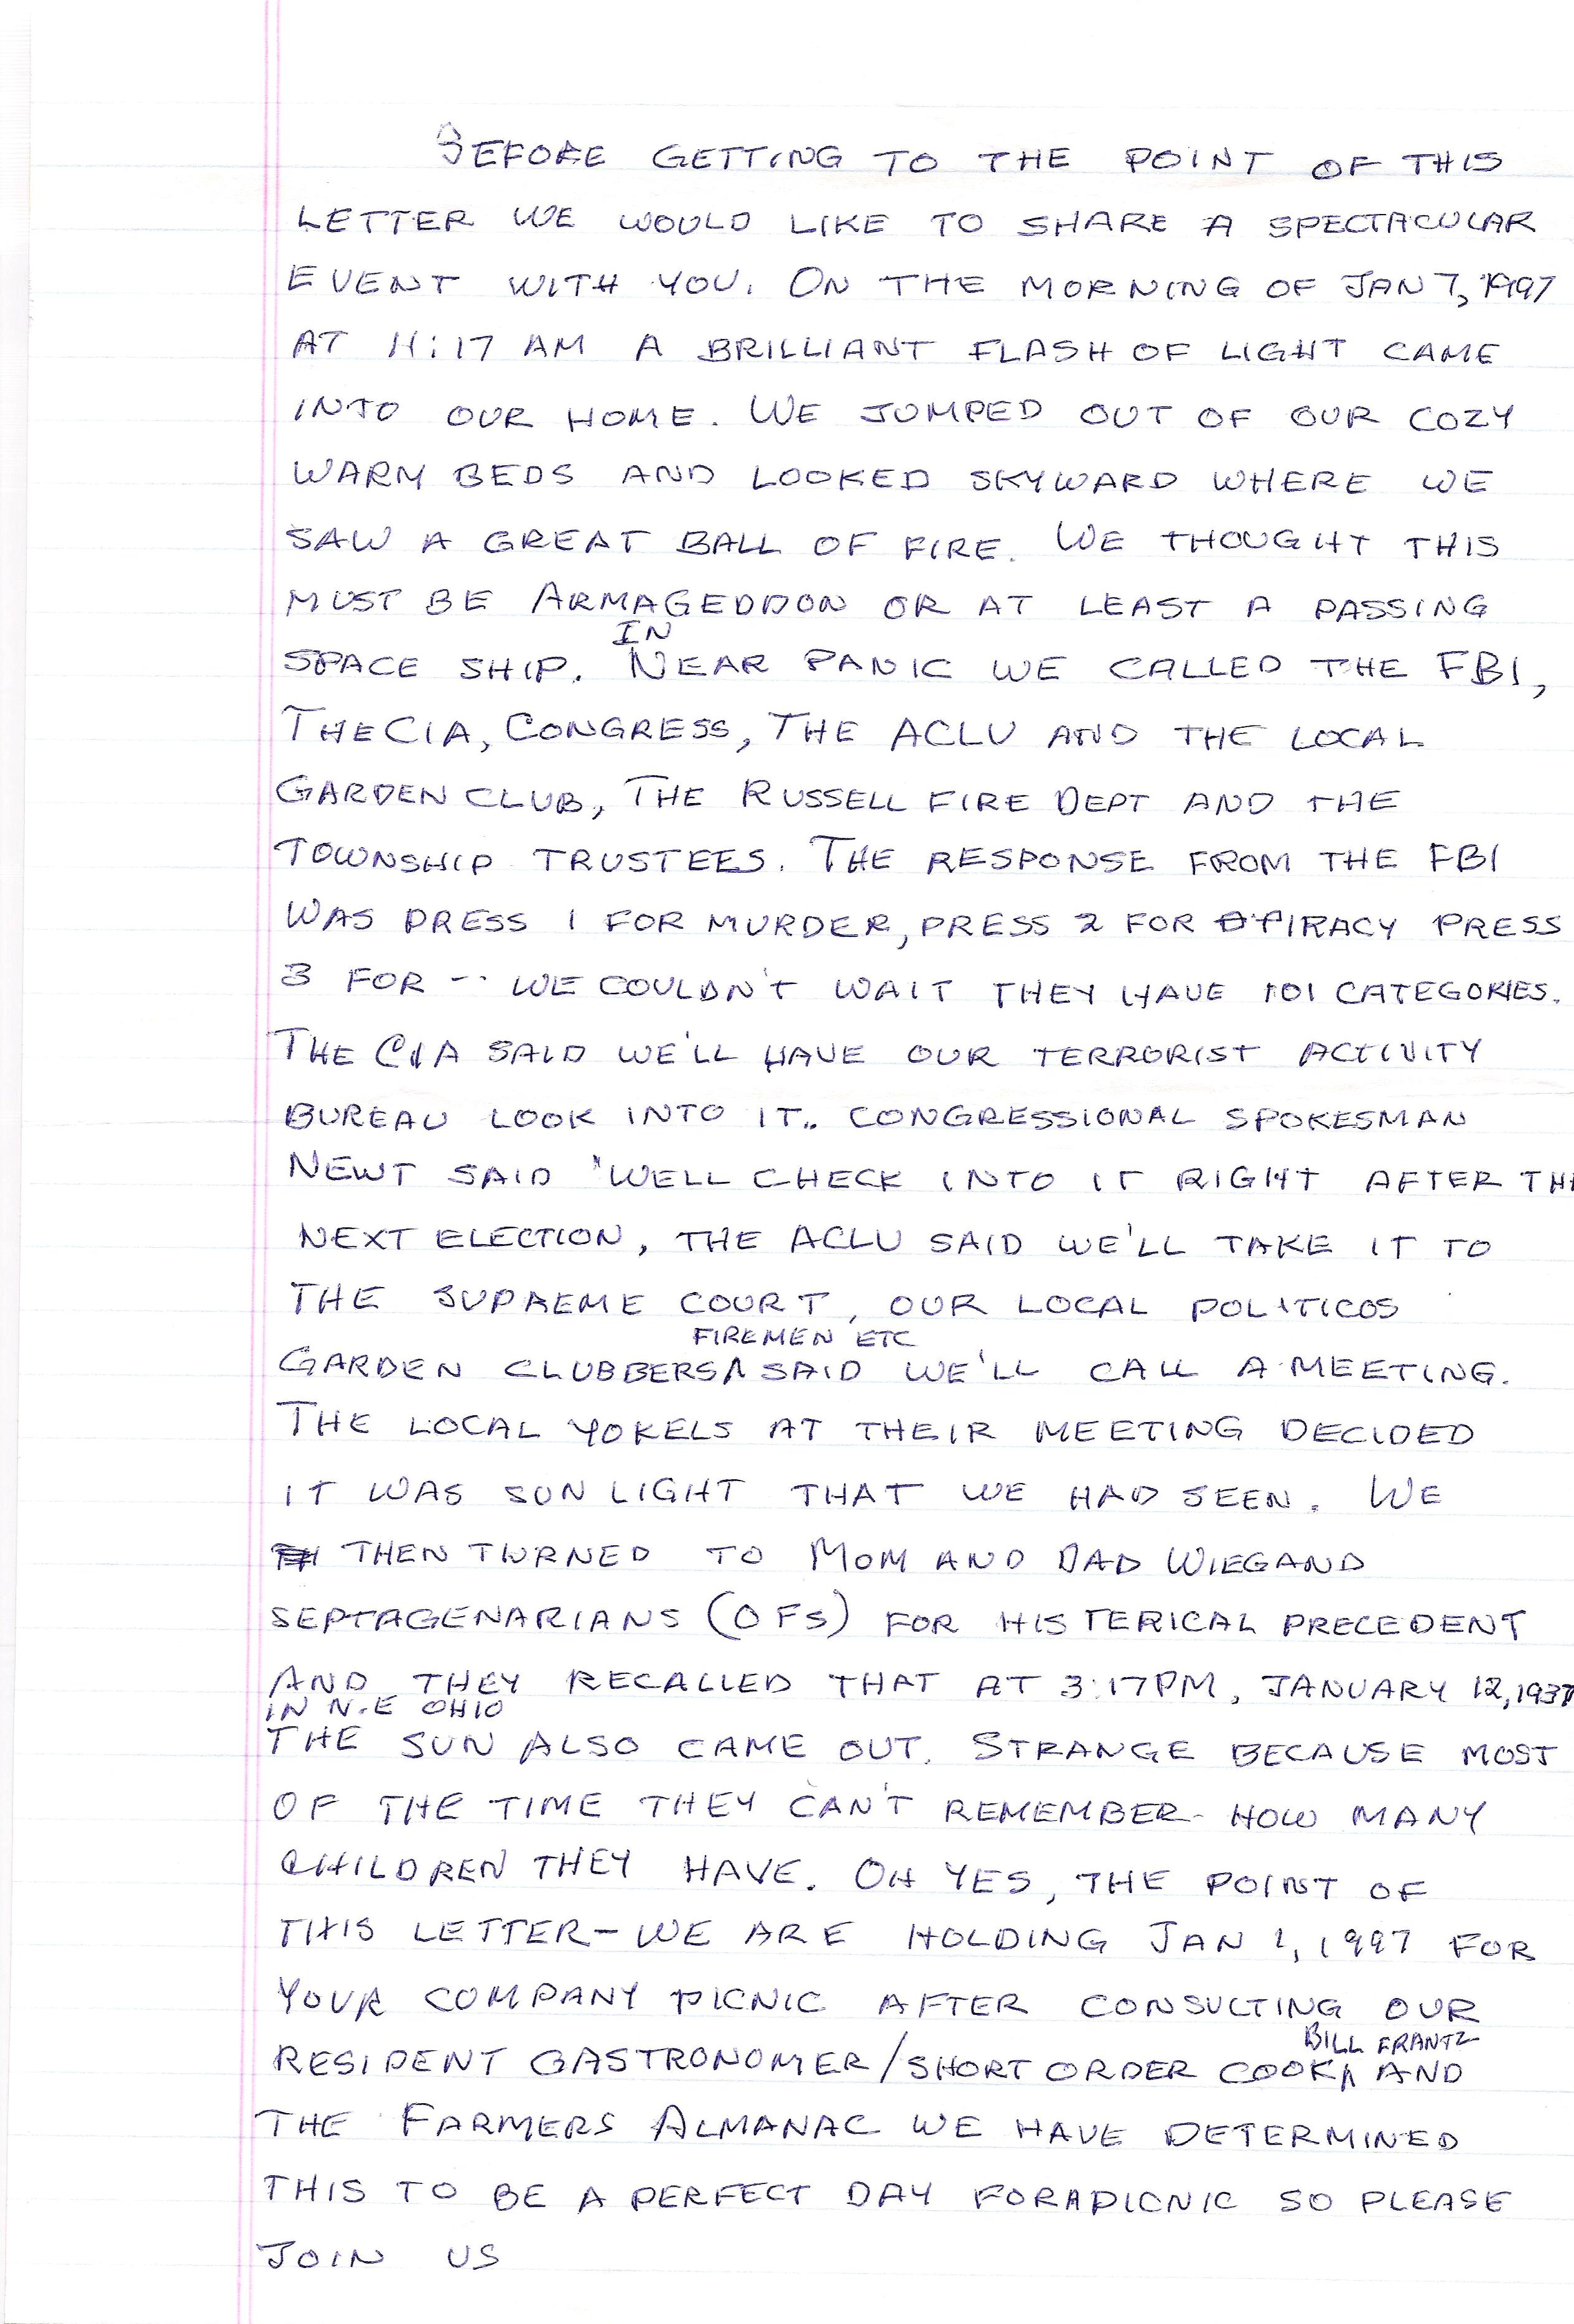 BEFORE GETTING TO THE POINT OF THIS
LETTER WE WOULD LIKE TO SHARE A SPECTACULAR
EVENT WITH YOU. ON THE MORNING OF JAN 7, 1997
AT 11:17 AM A BRILLIANT FLASH OF LIGHT CAME
INTO OUR HOME. WE JUMPED OUT OF OUR COZY
WARM BEDS AND LOOKED SKYWARD WHERE WE
SAW A GREAT BALL OF FIRE. WE THOUGHT THIS
MUST BE ARMAGEDDON OR AT LEAST A PASSING
IN
SPACE SHIP. NEAR PANIC WE CALLED THE FBI,
THE CIA, CONGRESS, THE ACLU AND THE LOCAL
GARDEN CLUB, THE RUSSELL FIRE DEPT AND THE
TOWNSHIP TRUSTEES. THE RESPONSE FROM THE FBI
WAS PRESS 1 FOR MURDER, PRESS 2 FOR PIRACY PRESS
3 FOR -- WE COULDN'T WAIT THEY HAVE 101 CATEGORIES.
THE CIA SAID WE'LL HAVE OUR TERRORIST ACTIVITY
BUREAU LOOK INTO IT.. CONGRESSIONAL SPOKESMAN
NEWT SAID "WELL CHECK INTO IT RIGHT AFTER TH
NEXT ELECTION, THE ACLU SAID WE'LL TAKE IT TO
THE SUPREME COURT, OUR LOCAL POLITICOS
FIREMEN ETC
GARDEN CLUBBERS SAID WE'LL CALL A MEETING.
THE LOCAL YOKELS AT THEIR MEETING DECIDED
IT WAS SUN LIGHT THAT WE HAD SEEN. WE
THEN TURNED TO MOM AND DAD WIEGAND
SEPTAGENARIANS (OFS) FOR HISTERICAL PRECEDENT
AND THEY RECALLED THAT AT 3:17PM, JANUARY 12, 1937
IN N.E OHIO
THE SUN ALSO CAME OUT. STRANGE BECAUSE MOST
OF THE TIME THEY CAN'T REMEMBER HOW MANY
CHILDREN THEY HAVE. OH YES, THE POINT OF
THIS LETTER - WE ARE HOLDING JAN 1, 1997 FOR
YOUR COMPANY PICNIC AFTER CONSULTING OUR
BILL FRANTZ
RESIDENT GASTRONOMER/SHORT ORDER COOK AND
THE FARMERS ALMANAC WE HAVE DETERMINED
THIS TO BE A PERFECT DAY FOR A PICNIC SO PLEASE
JOIN US